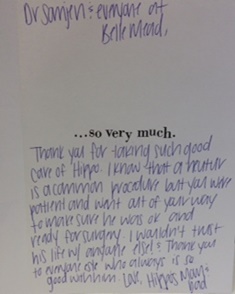 Dr Sanjen & everyone at
Belle Mead,
...so very much.
Thank you for taking such good
care of Hippo. I know that a neuter
is a common procedure but you were
patient and went out of your way
to make sure he was ok and
ready for surgery. I wouldn't trust
his life w/ anyone else! & Thank you
to everyone else who always is so
good with him. Love, Hippo's Mom &
Dad